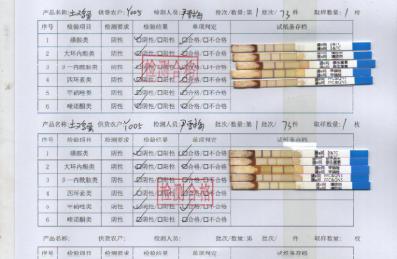 产品名称: 土鸡蛋 供货农户: Y005 检测人员: 批次/数量:第1 批次/ 75 件 取样数量:1 枚
序号 检验项目 检测要求 检验结果 单项判定 试纸条存档
1 磺胺类 阴性 ☑阴性/☐阳性 ☑合格/☐不合格
2 大环内酯类 阴性 ☑阴性/☐阳性 ☑合格/☐不合格
3 β-内酰胺类 阴性 ☑阴性/☐阳性 ☑合格/☐不合格
4 四环素类 阴性 ☑阴性/☐阳性 ☑合格/☐不合格
5 甲硝唑类 阴性 ☑阴性/☐阳性 ☑合格/☐不合格
6 喹诺酮类 阴性 ☑阴性/☐阳性 ☑合格/☐不合格
检测合格
产品名称: 土鸡蛋 供货农户: Y005 检测人员: 批次/数量:第1 批次/ 75 件 取样数量:1 枚
序号 检验项目 检测要求 检验结果 单项判定 试纸条存档
1 磺胺类 阴性 ☑阴性/☐阳性 ☑合格/☐不合格
2 大环内酯类 阴性 ☑阴性/☐阳性 ☑合格/☐不合格
3 β-内酰胺类 阴性 ☑阴性/☐阳性 ☑合格/☐不合格
4 四环素类 阴性 ☑阴性/☐阳性 ☑合格/☐不合格
5 甲硝唑类 阴性 ☑阴性/☐阳性 ☑合格/☐不合格
6 喹诺酮类 阴性 ☑阴性/☐阳性 ☑合格/☐不合格
检测合格
产品名称: 供货农户: 检测人员: 批次/数量:第 批次/ 件 取样数量: 枚
序号 检验项目 检测要求 检验结果 单项判定 试纸条存档